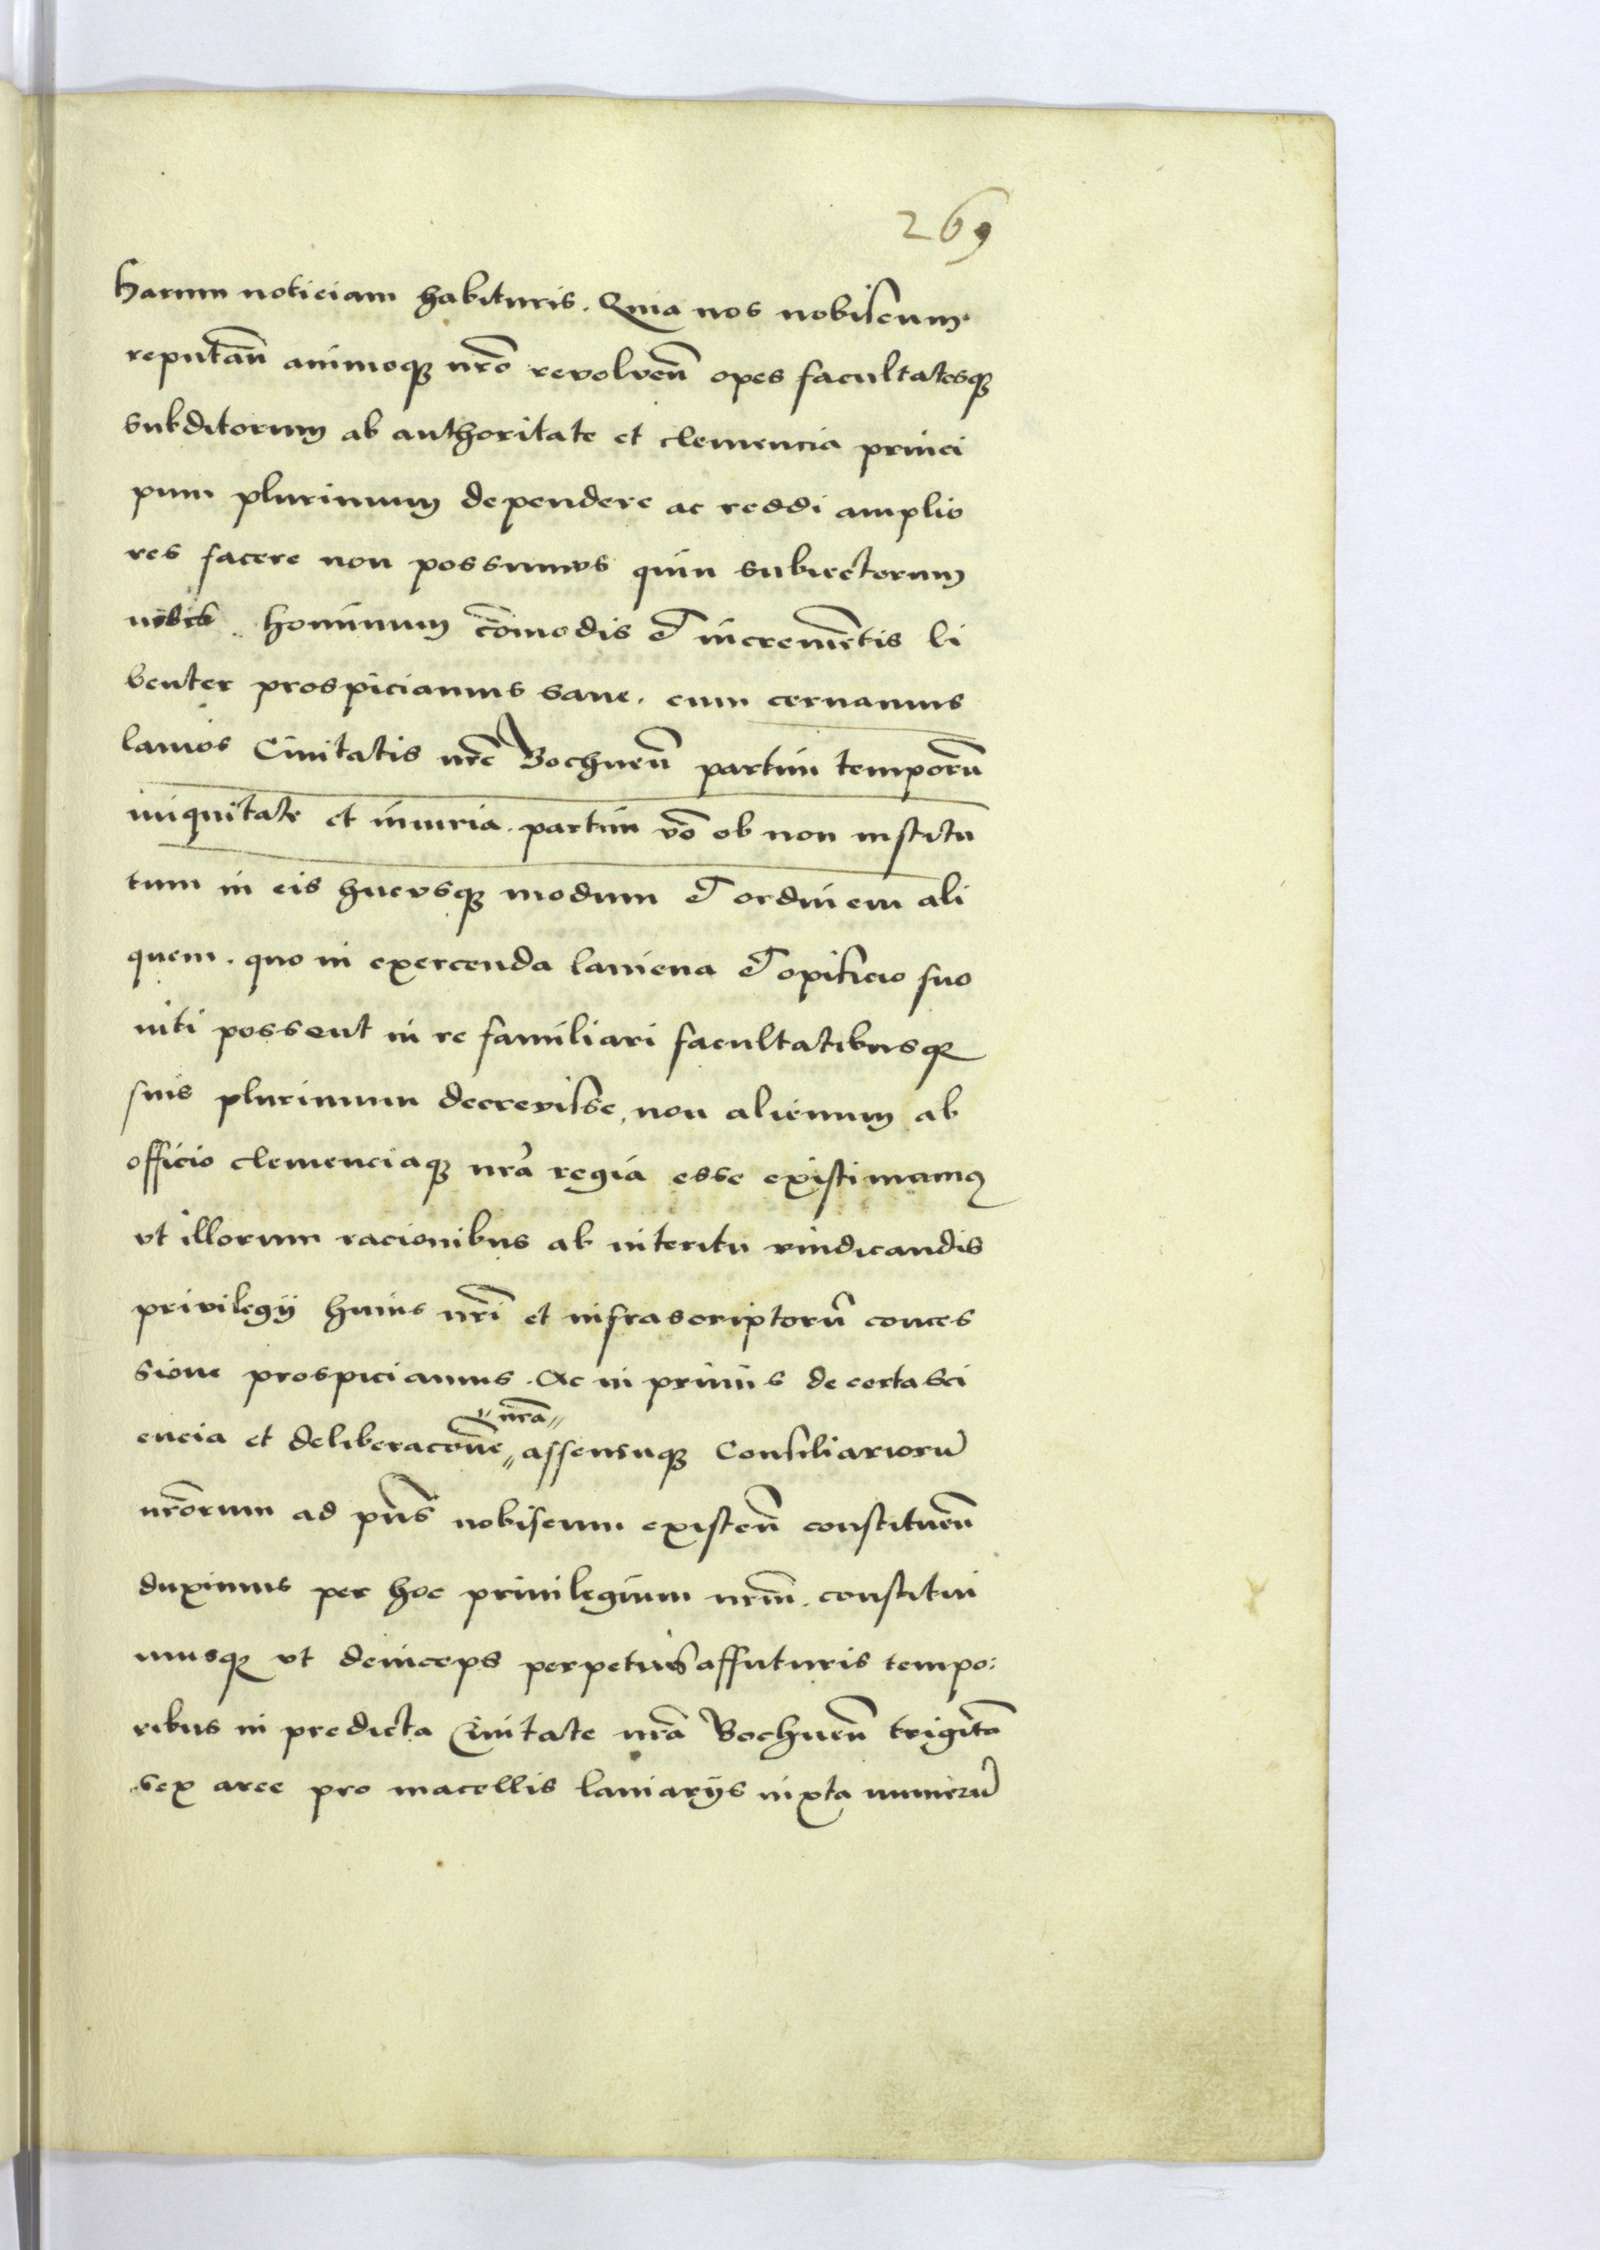 269
harum noticiam habituris. Quia nos nobiscum
reputan̄ animoqꝫ nr̄o revolven̄ opes facultatesqꝫ
subditorum ab authoritate et clemencia princi
pum plurimum dependere ac reddi amplio
res facere non possumus quin subiectorum
nobis hominum com̄odis et incremētis li
benter prospiciamus sane. cum cernamus
lanios Civitatis nr̄e Bochnen̄ partim temporū
iniquitate et iniuria. partim vō ob non institu
tum in eis hucusqꝫ modum et ordinem ali
quem. quo in exercenda laniena et opificio suo
niti possent in re familiari facultatibusqꝫ
suis plurimum decrevisse, non alienum ab
officio clemenciaqꝫ nrā regia esse existimamꝰ
vt illorum racionibus ab interitu vindicandis
privilegij huius nrī et infrascriptorū conces
sione prospiciamus. Ac in primis de certa sci
encia et deliberacōne nrā assensuqꝫ Consiliariorū
nrōrum ad pn̄s nobiscum existen̄ constituen̄
duximus per hoc privilegium nrm̄. constitui
musqꝫ vt deinceps perpetuis affuturis tempo:
ribus in predicta Civitate nrā Bochnen̄ trigīta
sex aree pro macellis laniarijs iuxta numerū